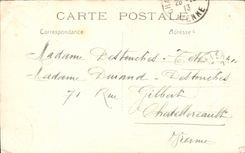 CARTE POSTALE
Correspondance Adresse
Madame Destouches
Madame Durand - Destouches
71 Rue Gilbert
Chatellerault
Vienne
13
ENNE